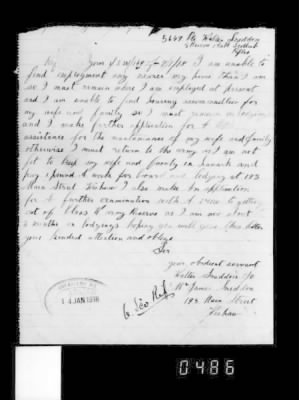 5648 Pte Walter Sneddon
I am unable to
find employment any nearer my home than I am
so I must remain where I am employed at present
and I am unable to find housing accomodation for
my wife and family so I must remain in lodgings
and I make further application for
assistance for the maintenance of my wife and family
otherwise I must return to the army as I am not
fit to keep my wife and family in Lanark and
pay a week for board and lodging at 193
Main Street Wishaw I also make an application
for a further examination with a view to getting
out of Class W army Reserve as I am now about
a month in lodgings hoping you will give this letter
your kindest attention and oblige
Sir
your obedient servant
Walter Sneddon c/o
Mr James Sneddon
193 Main Street
Wishaw
14 JAN 1918
0486